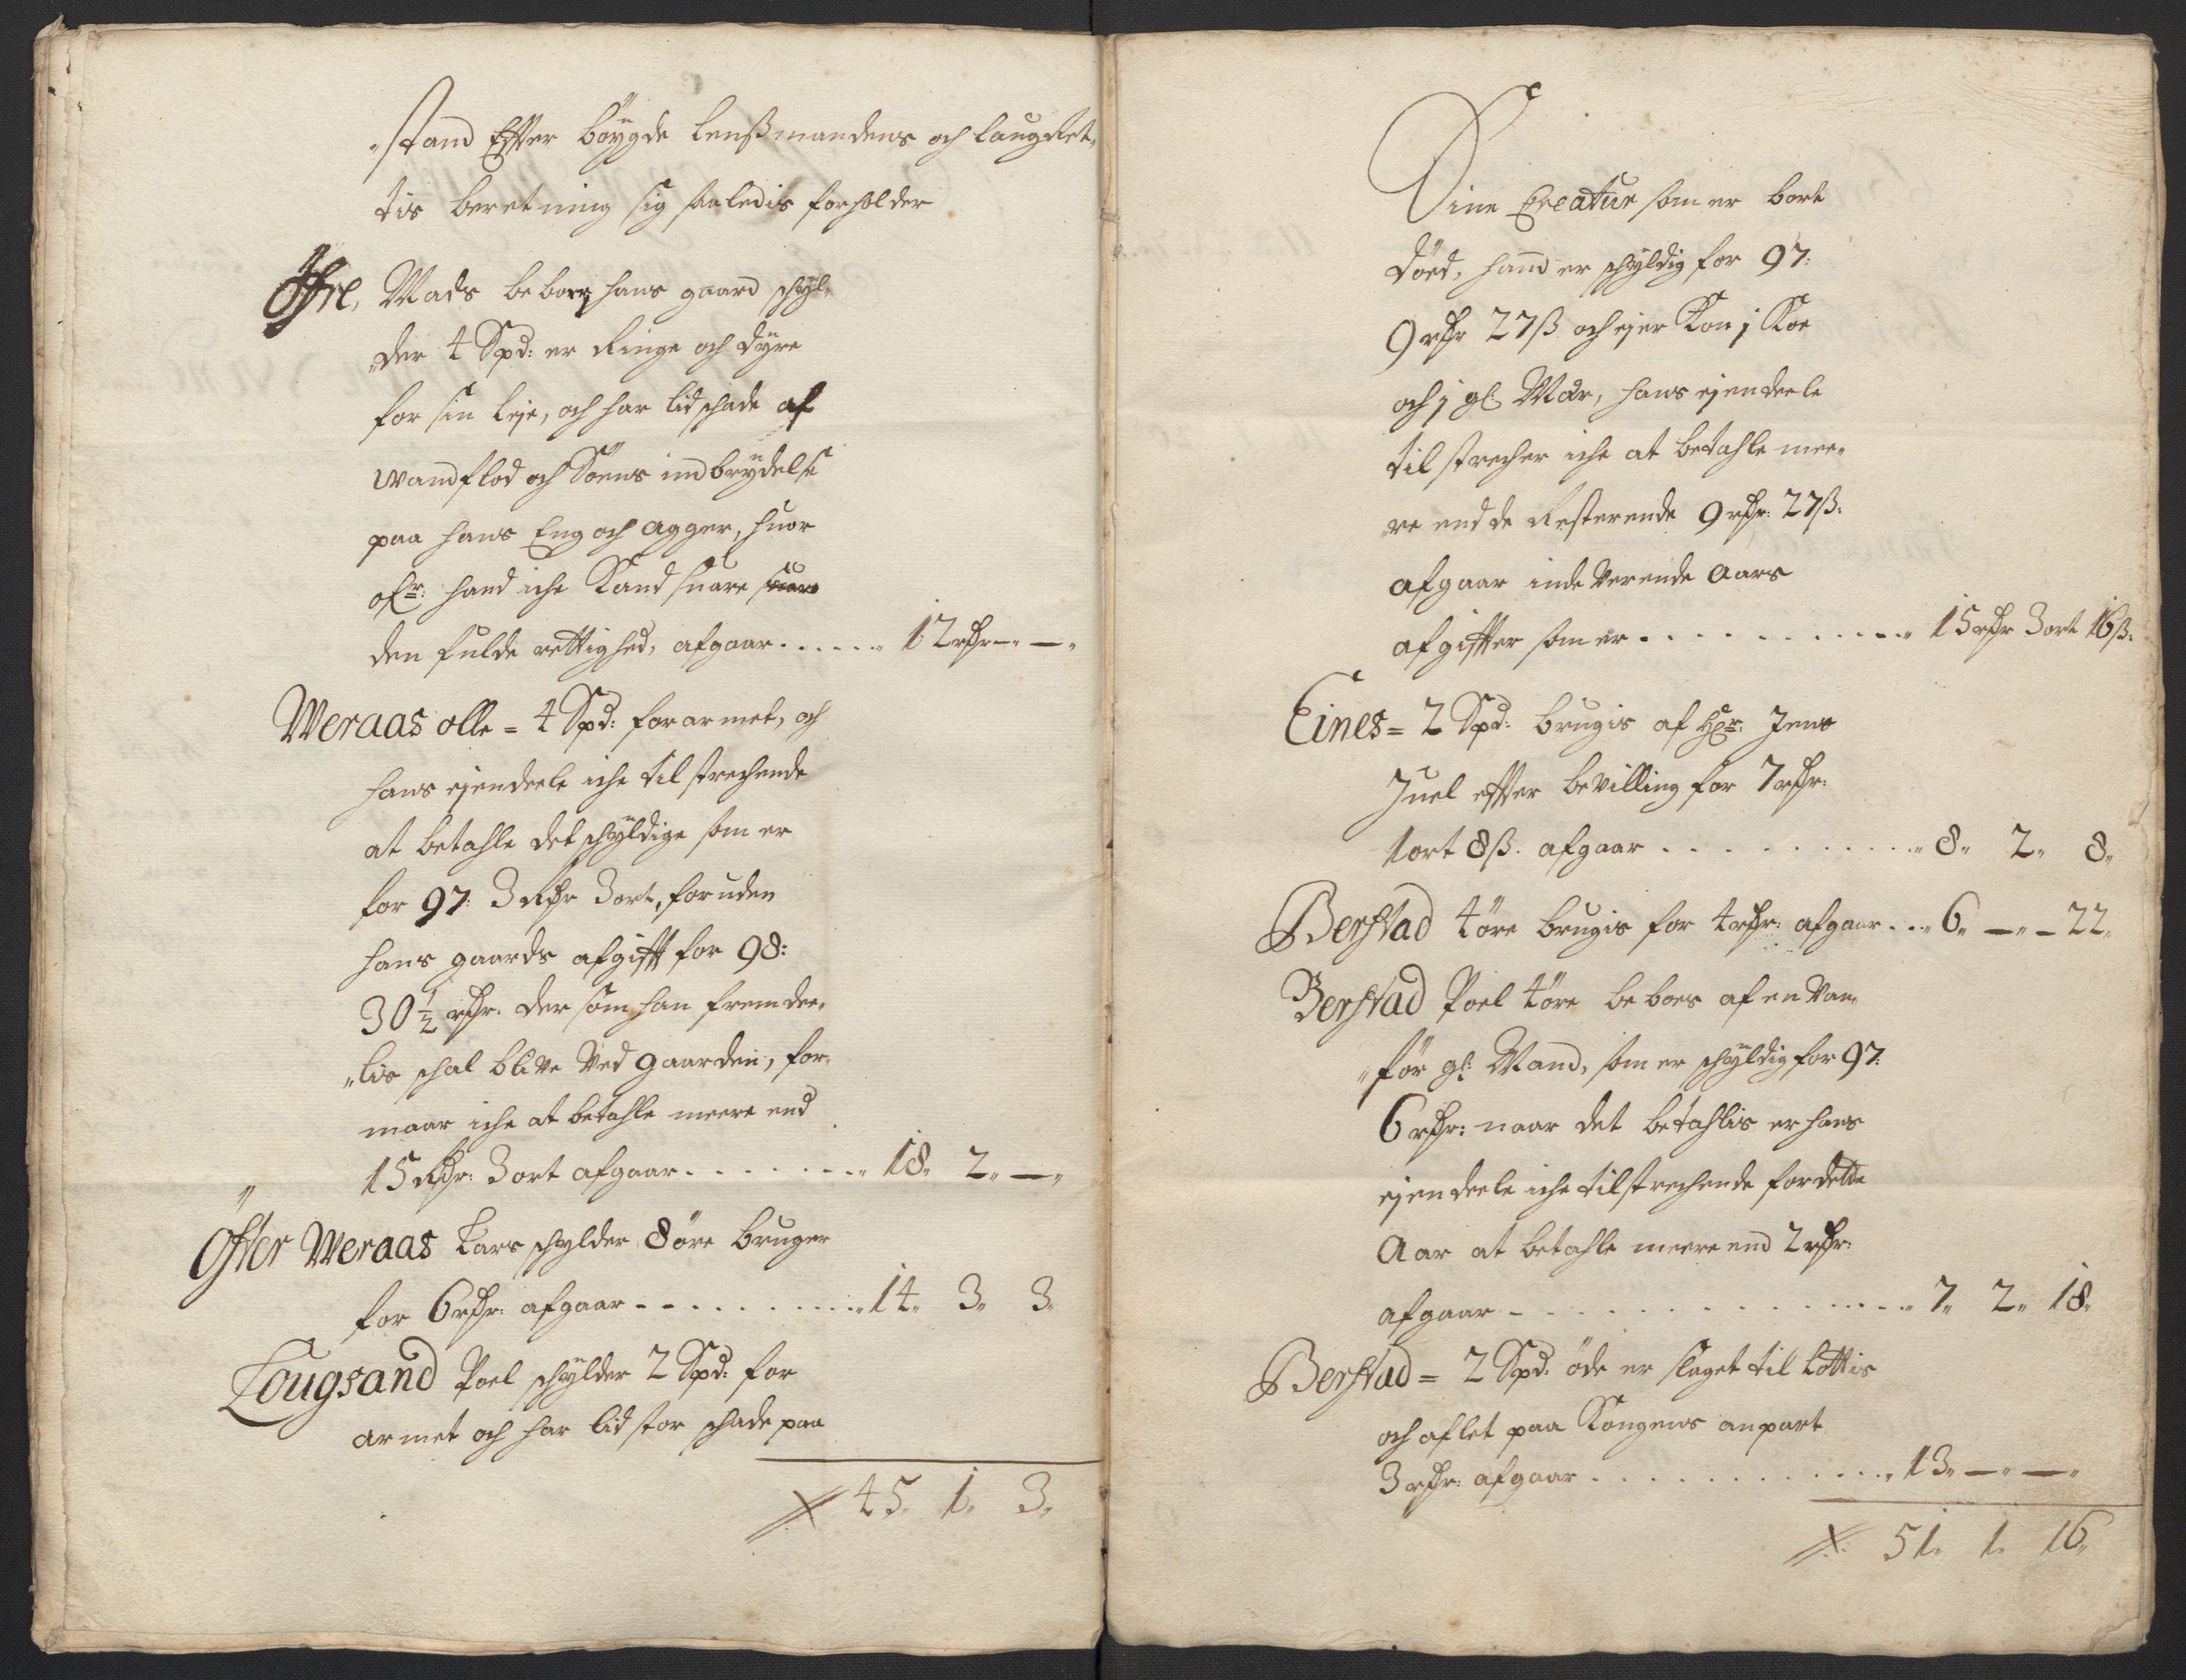 "stand Effter böygde Lensmandens och Laugret,
tis beretning sig saaledis forholder
Öfre, Mads beboer hans gaard schyl,
"der 4 Spd: er Ringe och dyre
for sin Leje, och har lid schade af
wandflod och Söens indbrydelse
paa hans Eng och agger, huor
ofr: hand iche Kand suare
den fulde rettighed, afgaar . . . . . . 12 rdr – " – "
Weraas olle = 4 Spd: forarmet, och
hans ejendeele iche tilstrechende
at betahle det schyldige som er
for 97: 3 Rdr 3 ort, foruden
hans gaards afgifft for 98:
30 ½ rdr. der som han fremdee,
"lis schal blive Ved gaarden, for,
maar iche at betahle meere end
15 Rdr: 3 ort afgaar . . . . . . . . 18 " 2 " – "
Öfter Weraas Lars schylder 8 öre bruger
for 6 rdr: afgaar - - - . . . . . . . 14 " 3 " 3 "
Lougsand Poel schylder 2 Spd: for
armet och har lid stor schade paa
45 " 1 " 3 "
Sine Creatur som er bort
död, hand er schyldig for 97:
9 rdr 27 ß och ejer Kon j Koe
och j gl: Mær, hans ejendeele
tilstrecher iche at betahle mee,
"re end de Resterende 9 rdr: 27 ß.
afgaar indeverende aars
afgiffter som er . . . . . . . . . . . 15 rdr 3 ort 16 ß.
Eines = 2 Spd: brugis af Hr: Jens
Juel effter bevilling for 7 rdr:
1 ort 8 ß. afgaar . . . . . . . . . . . 8 " 2 " 8 "
Berstad 4 öre brugis for 4 rdr: afgaar . . . 6 " – " – 22 "
Berstad Poel 4 öre beboes af en Van,
"för gl: Mand, som er schyldig for 97:
6 rdr: naar det betahlis er hans
ejendeele iche tilstrechende for dette
Aar at betahle meere end 2 rdr:
afgaar - . . . . . . . . . . . . . . . 7 " 2 " 18 "
Berstad = 2 Spd: öde er slaget til Lottis
och aflet paa Kongens anpart
3 rdr: afgaar . . . . . . . . . . . . 13 " – " – "
51 " 1 " 16 "